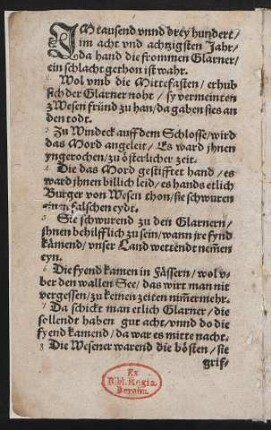 IM tausend vnnd drey hundert /
im acht vnd achzigsten Jahr /
da hand die frommen Glarner /
ein schlacht gethon ist wahr.
Wol vmb die Mittefasten / erhub
sich der Glarner noht / sy vermeinten
zWesen fründ zu han / da gaben sies an
den todt.
Zu Windeck auff dem Schlosse / wird
das Mord angeleit / Es ward jhnen
yngerochen / zu österlicher zeit.
Die das Mord gestifftet hand / es
ward jhnen billich leid / es hands etlich
Burger von Wesen thon / sie schwuren
einen falschen eydt.
Sie schwurend zu den Glarnern /
jhnen behilfflich zu sein / wann jre fynd
kämend / vnser Land wettendt nemmen
eyn.
Die fyend kamen in Fässern / wol v=
ber den wallen See / das wirt man nit
vergessen / zu keinen zeiten nimmermehr.
Da schickt man etlich Glarner / die
sollendt haben gut acht / vnnd do die
fyend kamend / da war es mitte nacht.
Die Wesener warend die bösten / sie
griff=
Ex
Bibl. Regia
Berolin.